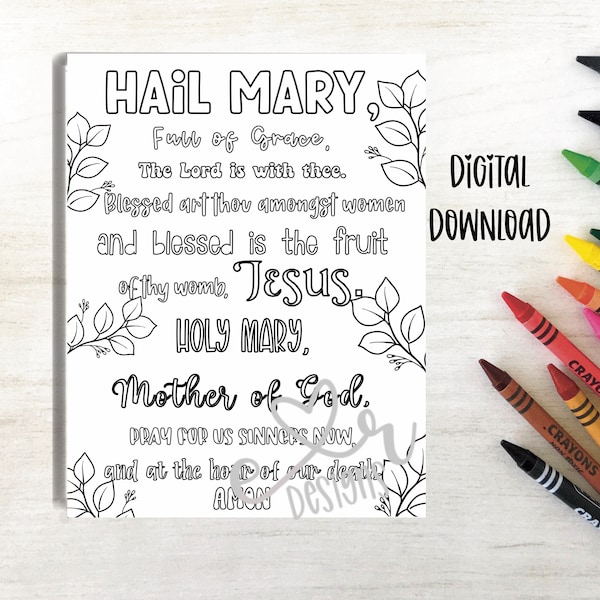 HAiL MARY,
Full of Grace,
The Lord is with thee.
Blessed art thou amongst women
and blessed is the fruit
of thy womb, Jesus.
HOLY MARY,
Mother of God,
PRAY FOR US SINNERS NOW,
and at the hour of our death
AMON
DiGiTAL
DOWNLOAD
e r
DESIGNS
CRAYONS
CRAYONS
CRAYONS